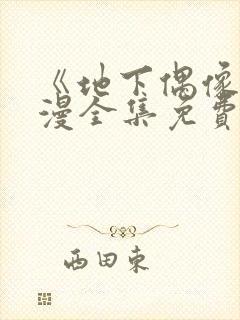 《地下偶像
漫全集免費
西田東